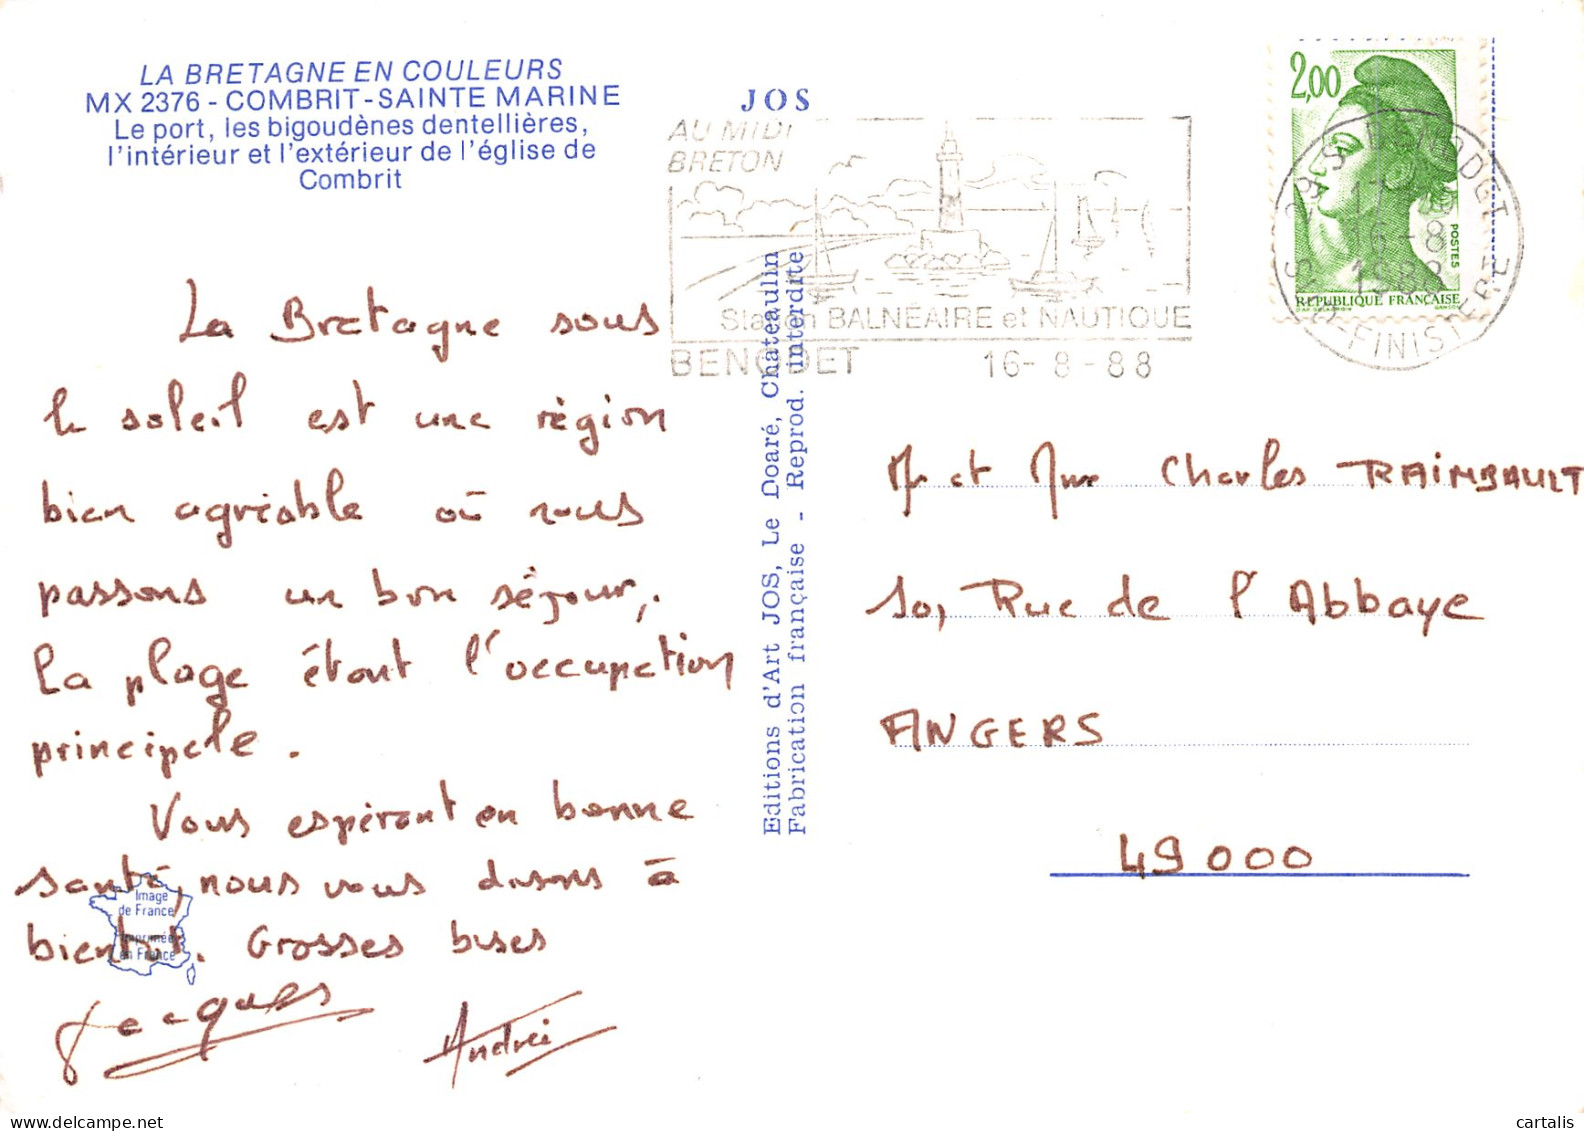 LA BRETAGNE EN COULEURS
MX 2376 - COMBRIT-SAINTE MARINE
Le port, les bigoudènes dentellières,
l'intérieur et l'extérieur de l'église de
Combrit
JOS
AU MIDI
BRETON
Station BALNÉAIRE et NAUTIQUE
BENODET 16-8-88
2,00
POSTES
REPUBLIQUE FRANÇAISE
BENODET
16-8
1988
SUD-FINISTERE
La Bretagne sous
le soleil est une région
bien agréable où nous
passons un bon séjour,
La plage étant l'occupation
principale.
Vous espérant en bonne
santé, nous vous disons à
bientôt. Grosses bises
Jacques
Andrei
Image
de France
Imprimée
en France
Editions d'Art JOS, Le Doaré, Chateaulin
Fabrication française - Reprod. interdite
Mr et Mme Charles RAIMBAULT
10, Rue de l'Abbaye
ANGERS
49000
cartalis